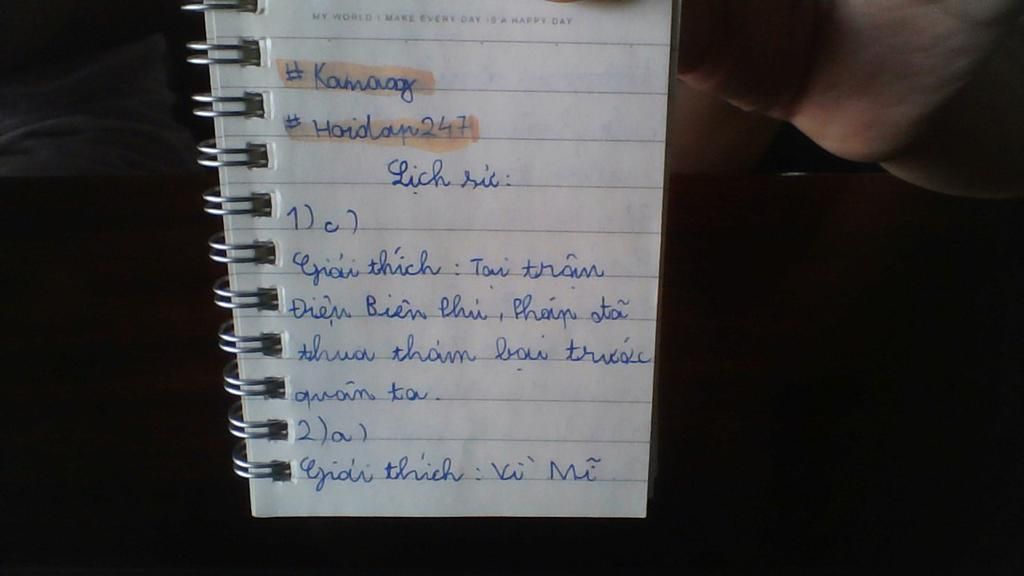 MY WORLD I MAKE EVERY DAY IS A HAPPY DAY
# Kamaog
# Hoidap247
Lịch sử:
1) c)
Giải thích : Tại trận
Điện Biên Phủ, Pháp đã
thua thảm bại trước
quân ta.
2) a)
Giải thích : Vì Mĩ